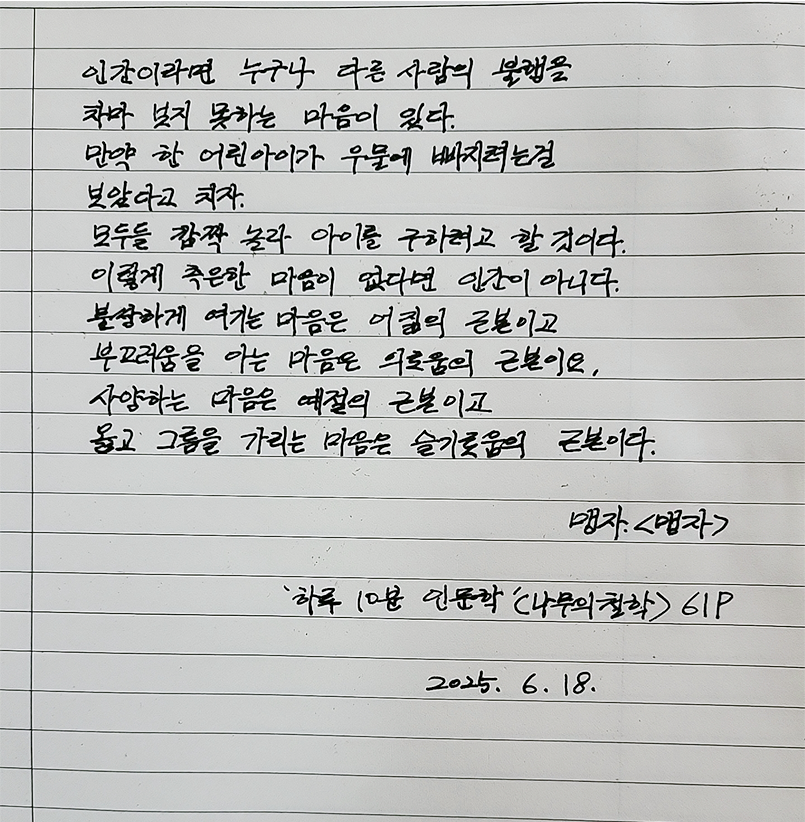 인간이라면 누구나 다른 사람의 불행을
차마 보지 못하는 마음이 있다.
만약 한 어린아이가 우물에 빠지려는걸
보았다고 치자.
모두들 깜짝 놀라 아이를 구하려고 할 것이다.
이렇게 측은한 마음이 없다면 인간이 아니다.
불쌍하게 여기는 마음은 어짊의 근본이고
부끄러움을 아는 마음은 의로움의 근본이요,
사양하는 마음은 예절의 근본이고
옳고 그름을 가리는 마음은 슬기로움의 근본이다.
맹자. <맹자>
'하루 10분 인문학' <나무의 철학> 61P
2025. 6. 18.